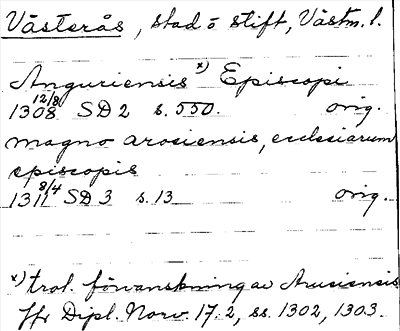 Västerås, stad o stift, Västm. l.
Anguriensis x) Episcopi
1308 12/8 SD 2 s. 550. orig.
magno arosiensis, ecclesiarum
episcopis
1311 8/4 SD 3 s. 13 orig.
x) trol. förvanskning av Arusiensis
Jfr Dipl. Norv. 17:2, ss. 1302, 1303.